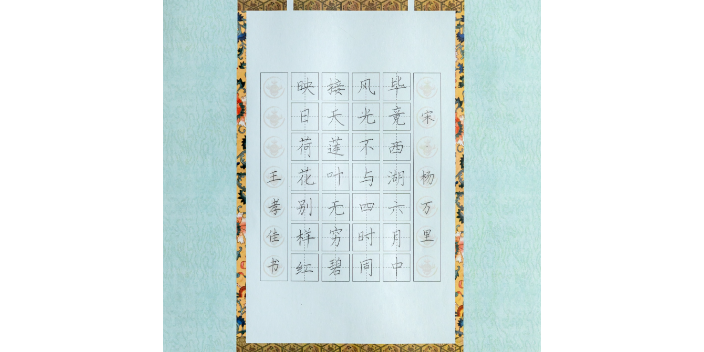 宋杨万里
毕竟西湖六月中
风光不与四时同
接天莲叶无穷碧
映日荷花别样红
王孝佳书